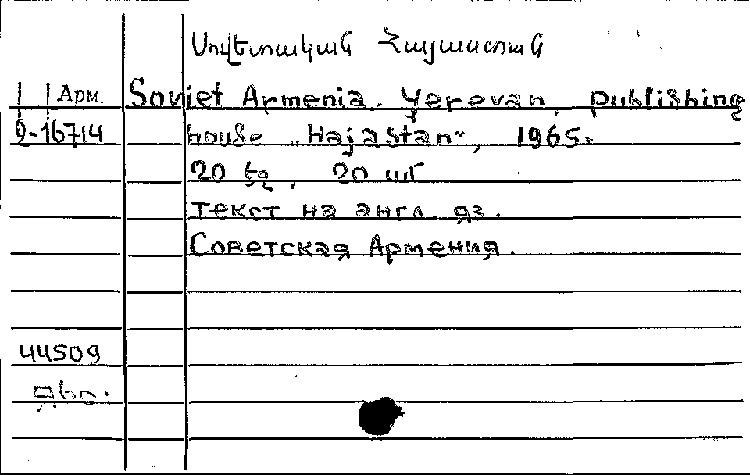 Սովետական Հայաստան
Арм. Soviet Armenia. Yerevan, publishing
2-16714 house „Hajastan", 1965.
20 էջ, 20 սմ
Текст на англ. яз.
Советская Армения.
44509